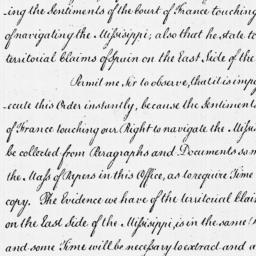 ing the Sentiments of the Court of France touching
of navigating the Missisippi; also that he state to
territorial Claims of Spain on the East Side of the
Permit me Sir to observe, that it is imp
ecute this Order instantly, because the Sentiments
of France touching our Right to navigate the Missi
be collected from Paragraphs and Documents som
the Mass of Papers in this Office, as to require Time
copy. The Evidence we have of the territorial Clai
on the East Side of the Missisippi, is in the same
and some Time will be necessary to extract and a